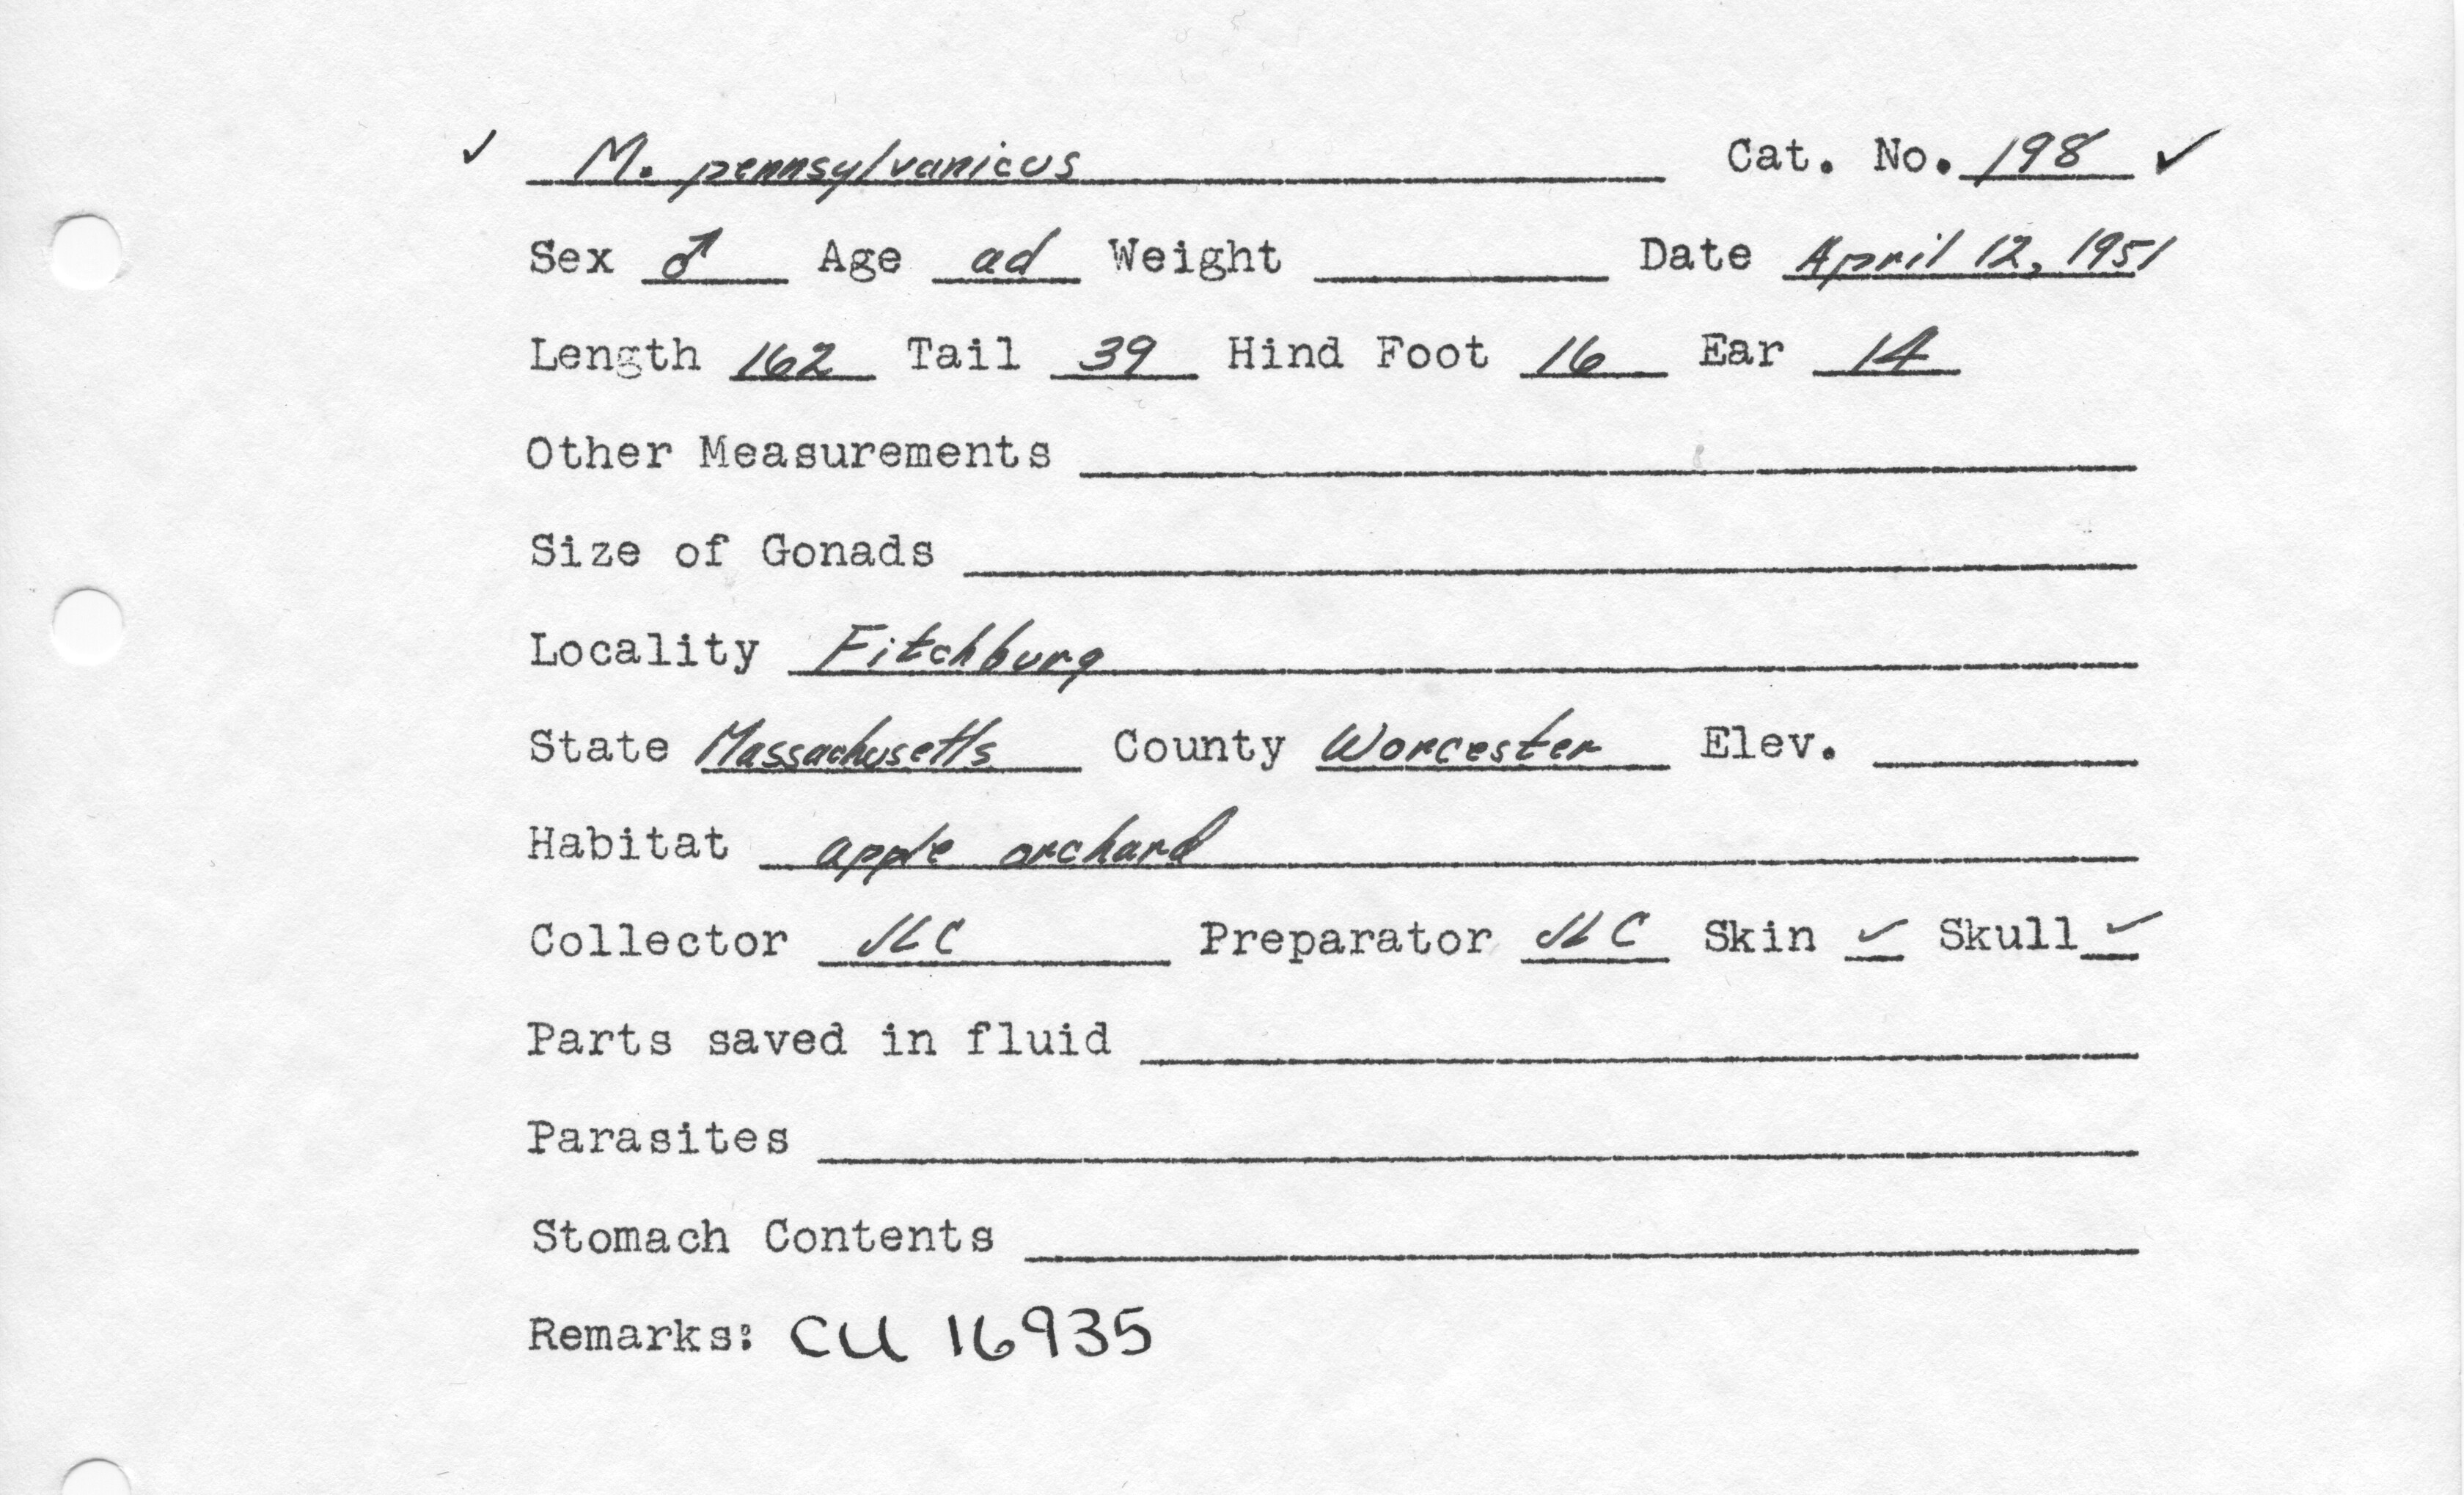 ✓ M. pennsylvanicus Cat. No. 198 ✓
Sex ♂ Age ad Weight Date April 12, 1951
Length 162 Tail 39 Hind Foot 16 Ear 14
Other Measurements
Size of Gonads
Locality Fitchburg
State Massachusetts County Worcester Elev.
Habitat apple orchard
Collector JLC Preparator JLC Skin ✓ Skull ✓
Parts saved in fluid
Parasites
Stomach Contents
Remarks: CU 16935